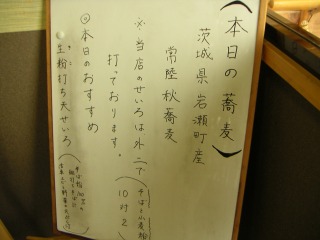 (本日の蕎麦)
茨城県 岩瀬町産
常陸秋蕎麦
※当店のせいろは外二で
(そば:小麦粉
10対2)
打っております。
◎本日のおすすめ
生粉打ち天せいろ